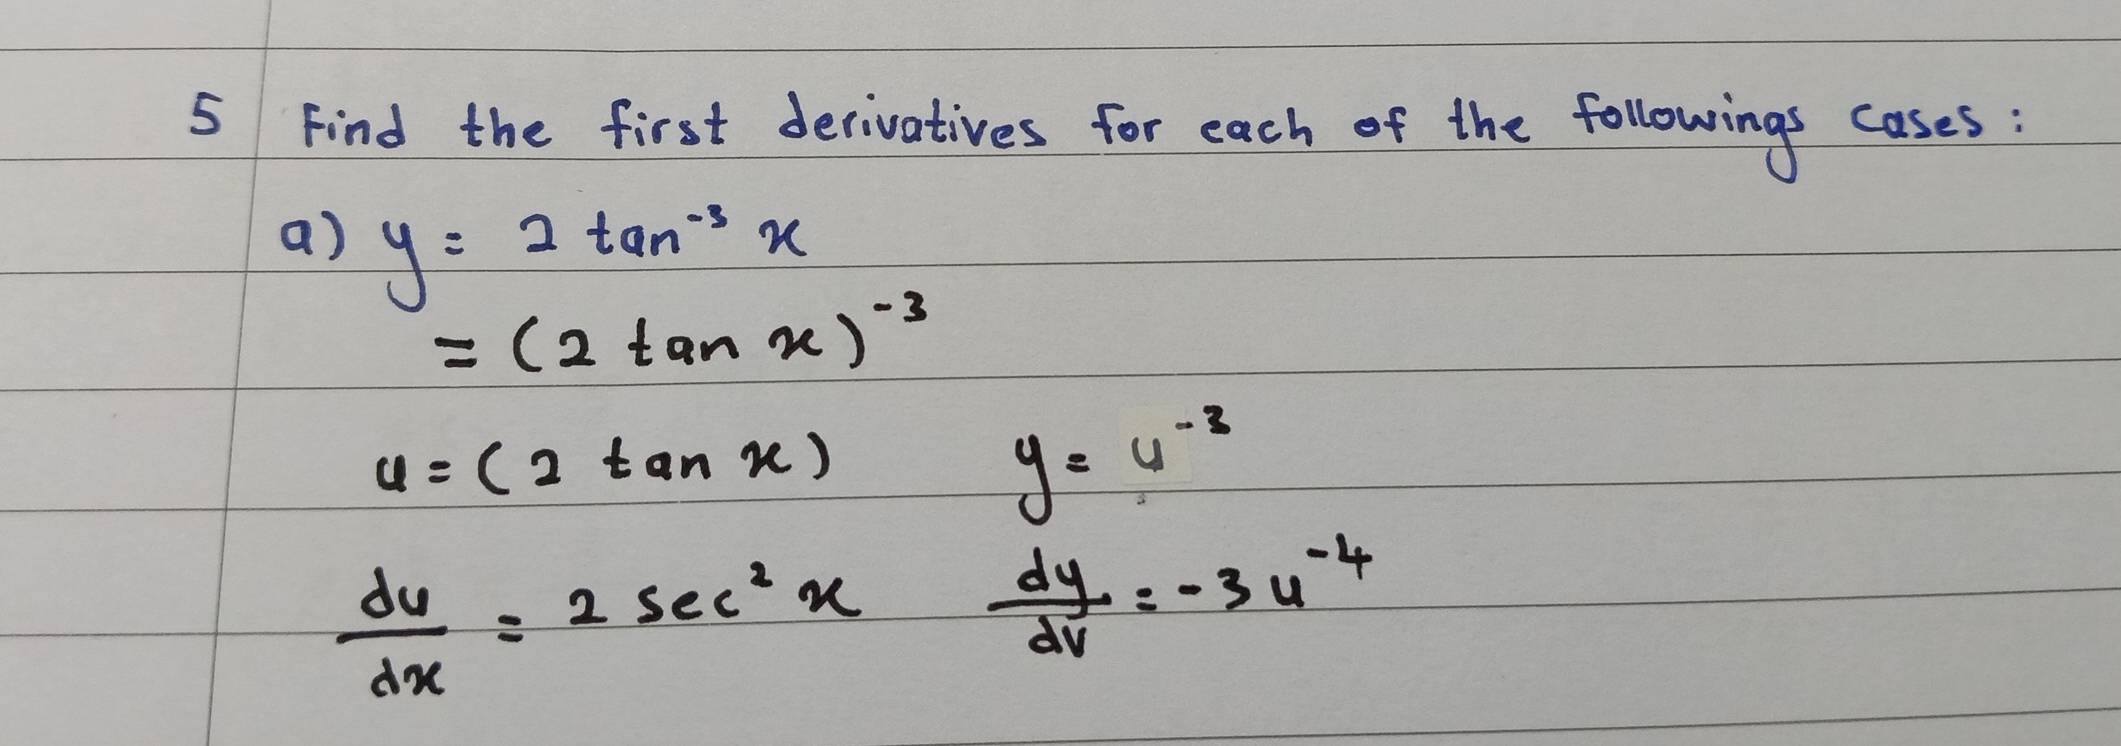 5 Find the first derivatives for each of the followings cases :
a) y = 2 tan⁻³ x
= (2 tan x)⁻³
u = (2 tan x) y = u⁻³
du/dx = 2 sec² x dy/dv = -3u⁻⁴